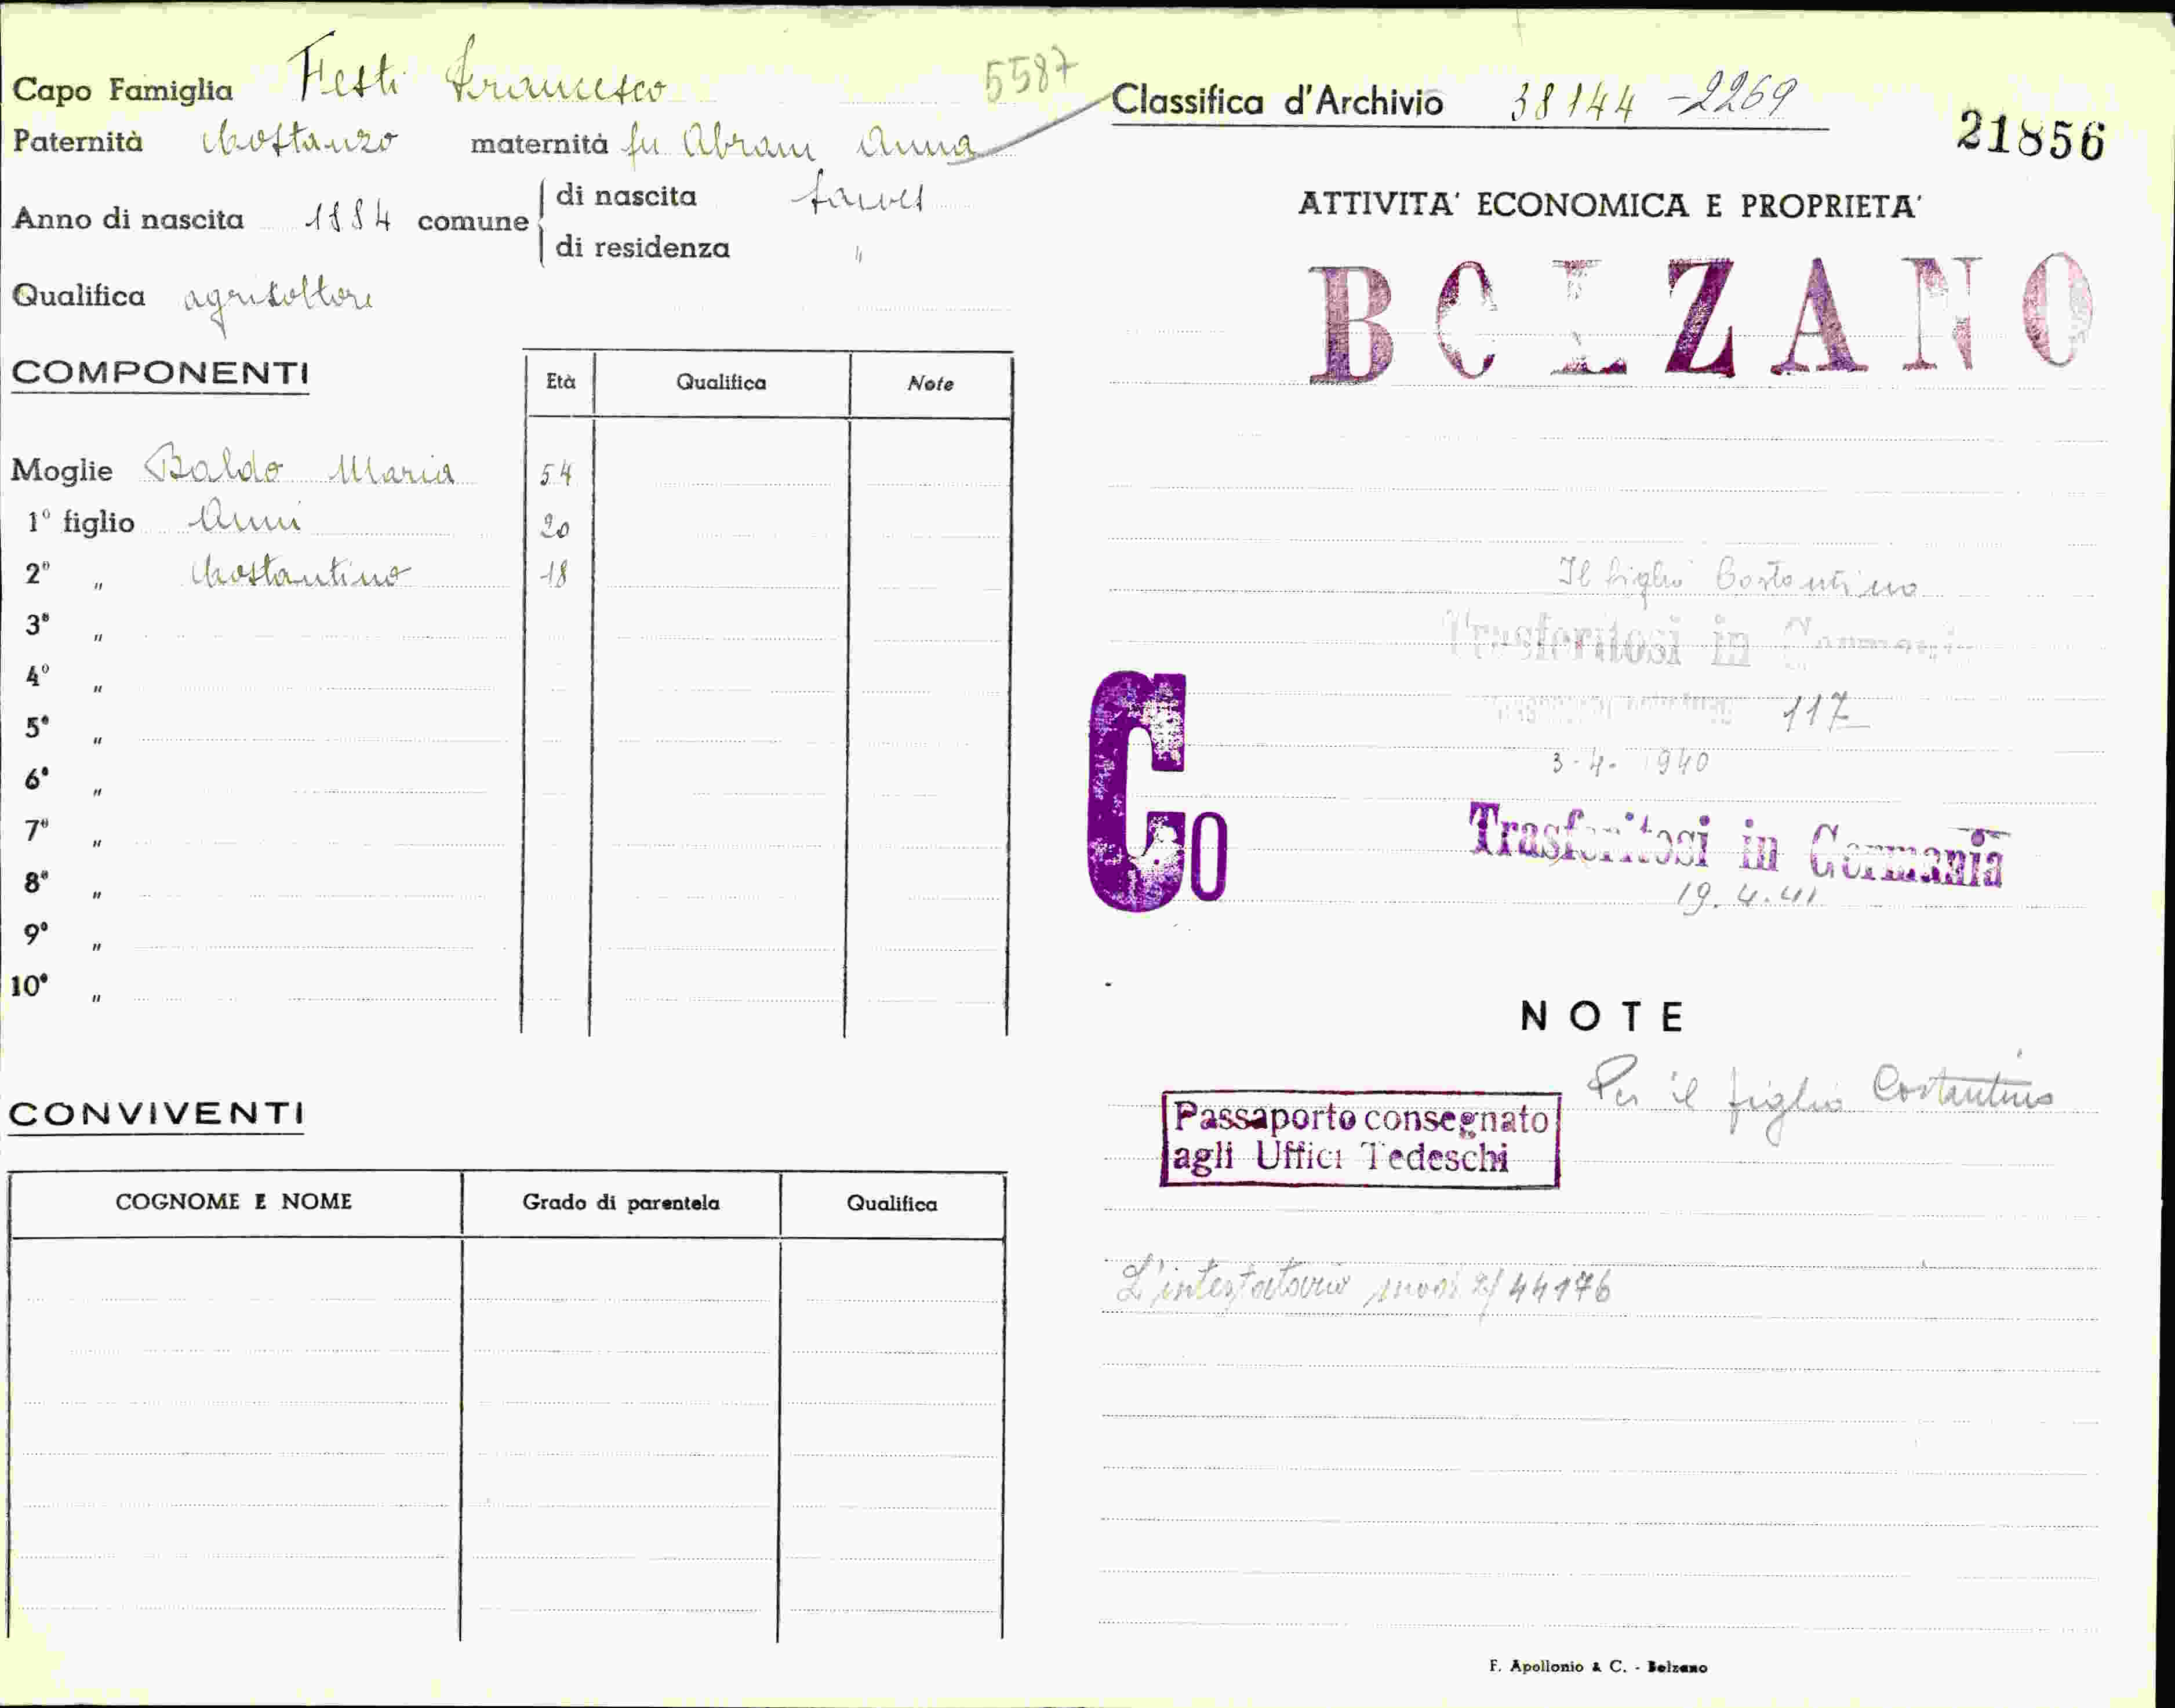 Capo Famiglia Festi Francesco
5587
Paternità Costanzo maternità fu Abram Anna
Anno di nascita 1884 comune
di nascita Laives
di residenza "
Qualifica agricoltore
COMPONENTI
Età Qualifica Note
Moglie Baldo Maria 54
1° figlio Anni 20
2° " Costantino 18
3° "
4° "
5° "
6° "
7° "
8° "
9° "
10° "
CONVIVENTI
COGNOME E NOME Grado di parentela Qualifica
Classifica d'Archivio 38144 - 2269
21856
ATTIVITA' ECONOMICA E PROPRIETA'
BOLZANO
Il figlio Costantino
Trasferitosi in Germania
117
3-4-1940
Co
Trasferitosi in Germania
19.4.41
NOTE
Per il figlio Costantino
Passaporto consegnato
agli Uffici Tedeschi
L'intestatario 2/44176
F. Apollonio & C. - Bolzano